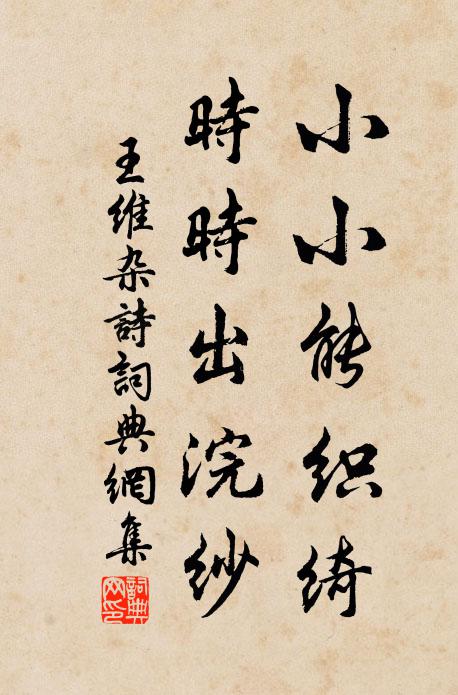 小小能织绮
時時出浣紗
王维杂詩詞典網集
詞典
网印